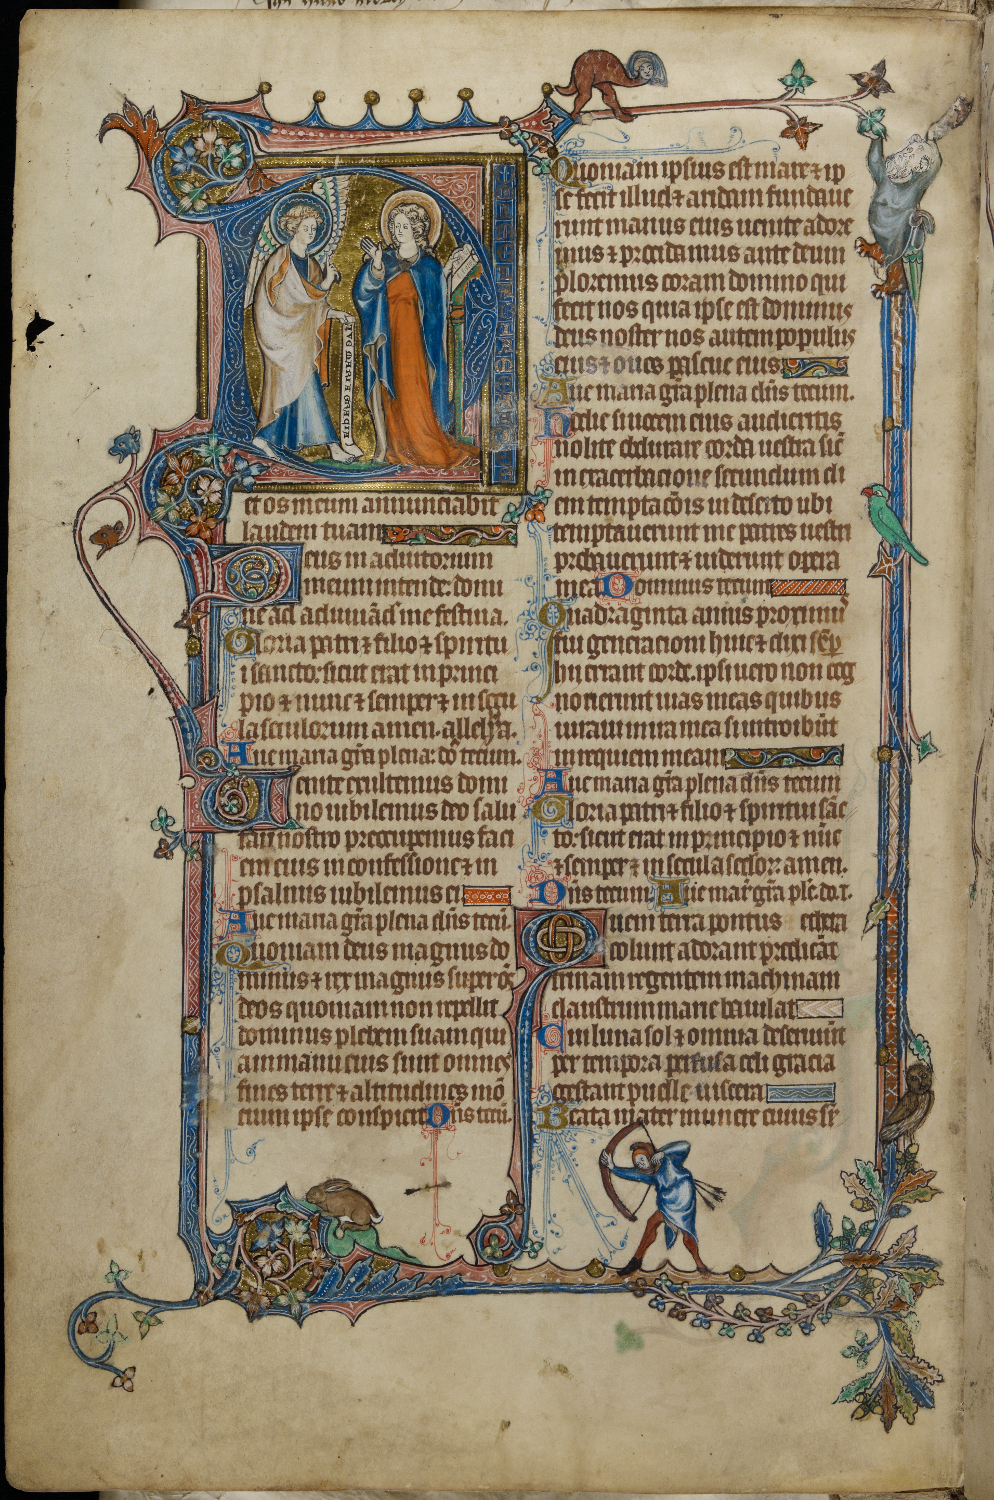 et os meum annunciabit
laudem tuam
Deus in adiutorium
meum intende: domi
ne ad adiuuãd' me festina.
Gloria patri ⁊ filio ⁊ spiritu
i sancto: sicut erat in princi
pio ⁊ nunc ⁊ semper ⁊ in secu
la seculorum amen. all'a.
Aue maria gr̃a plena: do' tecum.
Uenite exultemus domi
no iubilemus deo salu
tari nostro preocupemus faci
em eius in confessione ⁊ in
psalmis iubilemus ei
Aue maria gr̃a plena dñs tecũ.
Quoniam deus magnus do
minus ⁊ rex magnus super oẽs
deos quoniam non repellit
dominus plebem suam qui
a in manu eius sunt omnes
fines terre ⁊ altitudines mõ
cium ipse conspicit Dñs tecũ.
Quoniam ipsius est mare ⁊ ip
se fecit illud ⁊ aridam fundaue
runt manus eius uenite adore
mus ⁊ procidamus ante deum
ploremus coram domino qui
fecit nos quia ipse est dominus
deus noster nos autem populus
eius ⁊ oues pascue eius
Aue maria gr̃a plena dñs tecum.
Hodie si uocem eius audieritis
nolite obdurare corda uestra sic̃
in exacerbacione secundum di
em temptac̃ois in deserto ubi
temptauerunt me patres uestri
probauerunt ⁊ uiderunt opera
mea Dominus tecum
Quadraginta annis proximus
fui generacioni huic ⁊ dixi semp̃
hii errant corde. ipsi uero non cog
nouerunt uias meas quibus
iuraui in ira mea si introibũt
in requiem meam
Aue maria gr̃a plena dñs tecum
Gloria patri ⁊ filio ⁊ spiritui sãc
to: sicut erat in principio ⁊ nũc
⁊ semper ⁊ in secula sc̃lor: amen.
Dñs tecum Aue mar' gr̃a ple. do. t.
Quem terra pontus ethera
colunt adorant predicãt
trinam regentem machinam
claustrum marie baiulat
Cui luna sol ⁊ omnia deseruiũt
per tempora perfusa celi gracia
gestant puelle uiscera
Beata mater munere cuius sr̃